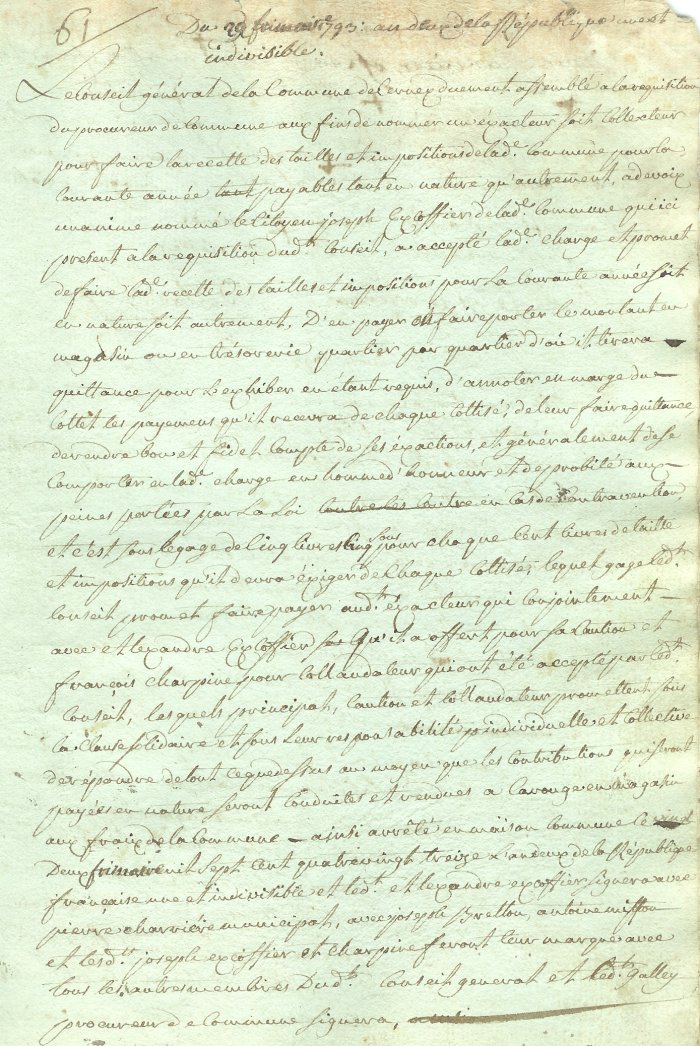 61
Du 22 frimaire 1793. an deux de la République une et
indivisible.
Le Conseil général de la Commune de Cernex duement assemblé a la requisition
du procureur de Commune aux fins de nommer un exacteur soit Collecteur
pour faire la recette des tailles et impositions de lad.e Commune pour la
Courante année tant payables tant en nature qu'autrement, a de voix
unanime nommé le Citoyen joseph Excoffier de lad.e Commune qui ici
present a la requisition dud.t Conseil, a accepté lad.e charge et promet
de faire lad.e recette des tailles et impositions pour La Courante année soit
en nature soit autrement, D'en payer ou faire porter les montant en
magasin ou en trésorerie quartier par quartier d'où il tirera
quittance pour L'exhiber en étant requis, d'annoter en marge du
Cottet les payemens qu'il recevra de chaque Cottisé, de leur faire quittance
de rendre bon et fidel Compte de ses éxactions, et généralement de se
Comporter en lad.e charge en homme d'honneur et de probité aux
peines portées par La Loi contre les contre en Cas de Contravention,
et c'est sous le gage de Cinq livres Cinq sous pour chaque Cent livres de taille
et impositions qu'il devra éxiger de Chaque Cottisé, lequel gage led.t
Conseil promet faire payer aud.t éxacteur qui Conjointement
avec alexandre Excoffier Qu'il a offert pour sa Caution et
françois Charpine pour Collaudateur qui ont été accepté par led.t
Conseil, lesquels principal, Caution et Collaudateur promettent sous
la Clause solidaire et sous Leur responsabilité individuelle et Collective
de répondre de tout ce que dessus au moyen que les Contributions qui seront
payées en nature seront Conduites et rendues a Carouge en magasin
aux fraix de la Commune ainsi arrêté en maison Commune le
Deux frimaire mil Sept Cent quatre vingt treize L'an deux de la République
française une et indivisible et led.t alexandre excoffier signera avec
pierre charriere municipal, avec joseph Bretton, antoine
et lesd.ts joseph excoffier et Charpine feront leur marque avec
tous les autres membres Dud.t Conseil general et led.t Galley
procureur de Commune signera,